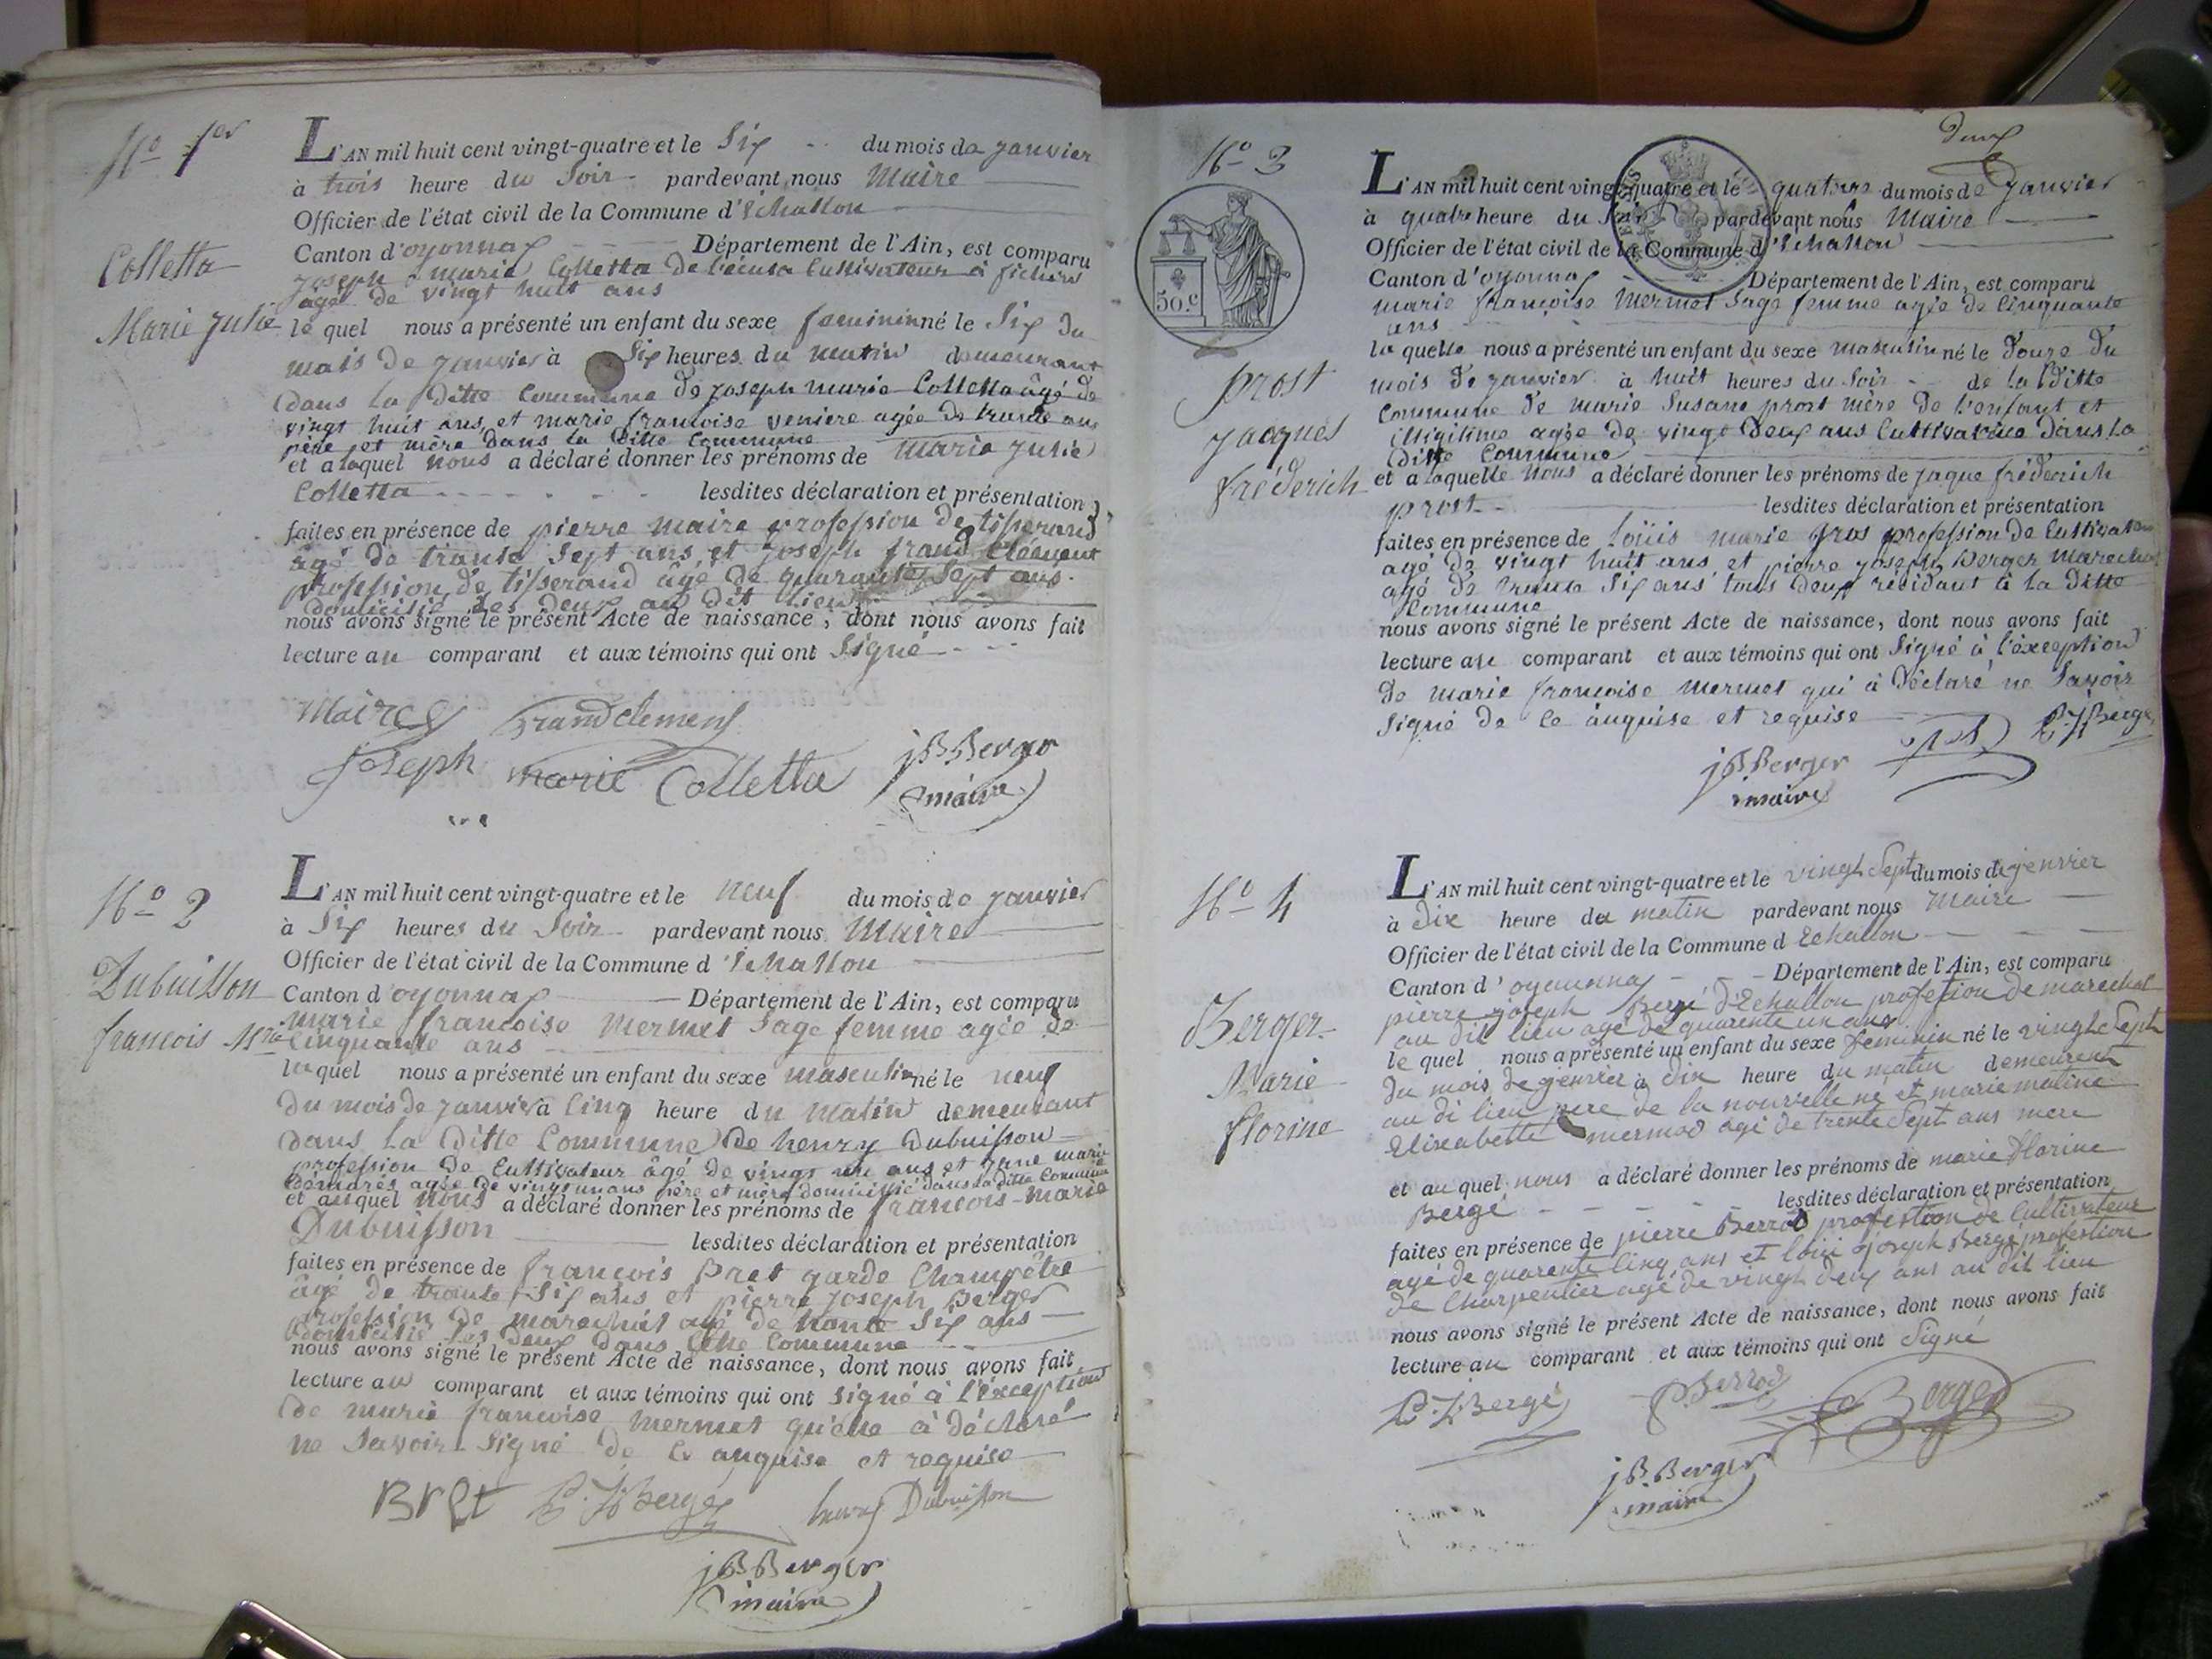 No 1er
L'AN mil huit cent vingt-quatre et le Six du mois de janvier
à trois heure du Soir pardevant nous Maire
Officier de l'état civil de la Commune d'Echallon
Canton d'oyonnax Département de l'Ain, est comparu
Colletta
joseph marie Colletta Cultivateur à
agé de vingt huit ans
Marie Julie
le quel nous a présenté un enfant du sexe feminin né le Six du
mois de janvier à Six heures du matin demeurant
dans la ditte Commune de joseph marie Colletta âgé de
vingt huit ans et marie francoise veniere agée de trante ans
père et mère dans la ditte Commune
et a laquel nous a déclaré donner les prénoms de Marie julie
Colletta lesdites déclaration et présentation
faites en présence de pierre Maire profession de tisserand
agé de trante Sept ans et joseph
profession de tisserand âgé de quarante Sept ans
domicilié les deux au dit lieu
nous avons signé le présent Acte de naissance, dont nous avons fait
lecture au comparant et aux témoins qui ont Signé
Maire Grandclement
joseph marie Colletta jB Berger
maire
No 2
L'AN mil huit cent vingt-quatre et le neuf du mois de janvier
à Six heures du Soir pardevant nous Maire
Officier de l'état civil de la Commune d'Echallon
Dubuisson
Canton d'oyonnax Département de l'Ain, est comparu
marie francoise Mermet Sage femme agée de
francois Mrie
Cinquante ans
laquel nous a présenté un enfant du sexe masculin né le neuf
du mois de janvier à Cinq heure du Matin demeurant
dans la Ditte Commune de henry Dubuisson
profession de Cultivateur âgé de vingt un ans et jane marie
agée de vingt un ans père et mère domicilié dans la ditte Commune
et auquel nous a déclaré donner les prénoms de francois-marie
Dubuisson lesdites déclaration et présentation
faites en présence de francois Bret garde Champêtre
âgé de trante Six ans et pierre joseph Berger
profession de marechal agé de trante Six ans
domicilié les deux dans Cette Commune
nous avons signé le présent Acte de naissance, dont nous avons fait
lecture au comparant et aux témoins qui ont Signé à l'éxception
de marie francoise Mermet qu'elle à déclaré
ne Savoir Signé de Ce anquise et requise
Bret P. J. Bergé henry Dubuisson
jB Berger
maire
Deux
No 3
L'AN mil huit cent vingt-quatre et le quatorze du mois de janvier
à quatre heure du Soir pardevant nous Maire
Officier de l'état civil de la Commune d'Echallon
Canton d'oyonnax Département de l'Ain, est comparu
50.c
marie françoise Mermet Sage femme agée de Cinquante
ans
laquelle nous a présenté un enfant du sexe masculin né le Douze du
prost
mois de janvier à huit heures du Soir de la Ditte
Commune de marie Susane prost mère de l'enfant et
jacques
illigitime agée de vingt deux ans Cultivatrice dans la
ditte Commune
fréderich
et a laquelle nous a déclaré donner les prénoms de jaque fréderich
prost lesdites déclaration et présentation
faites en présence de loüis marie gros profession de Cultivateur
agé de vingt huit ans et pierre joseph Berger Marechal
agé de trante Six ans tous deux residant à la ditte
Commune
nous avons signé le présent Acte de naissance, dont nous avons fait
lecture au comparant et aux témoins qui ont Signé à l'éxception
de marie francoise Mermet qui à Déclaré ne Savoir
Signé de Ce anquise et requise
P. J. Bergé
jB Berger
maire
No 4
L'AN mil huit cent vingt-quatre et le vingt Sept du mois de jenvier
à dix heure du matin pardevant nous Maire
Officier de l'état civil de la Commune d Echallon
Canton d'oyounnax Département de l'Ain, est comparu
Berger
pierre joseph Bergé d'Echallon profession de marechal
au dit lieu agé de quarente un ans
le quel nous a présenté un enfant du sexe feminin né le vingt Sept
Marie
du mois de jenvier à dix heure du matin demeurent
au di lieu pere de la nouvelle né et marie
florine
Elixabette mermod agé de trente Sept ans mere
et au quel nous a déclaré donner les prénoms de marie florine
Bergé lesdites déclaration et présentation
faites en présence de pierre Berrod profestion de Cultivateur
agé de quarente Cinq ans et joseph Bergé profestion
de Charpentier agé de vingt deux ans au dit lieu
nous avons signé le présent Acte de naissance, dont nous avons fait
lecture au comparant et aux témoins qui ont Signé
P. J. Bergé P Berrod Berger
jB Berger
maire